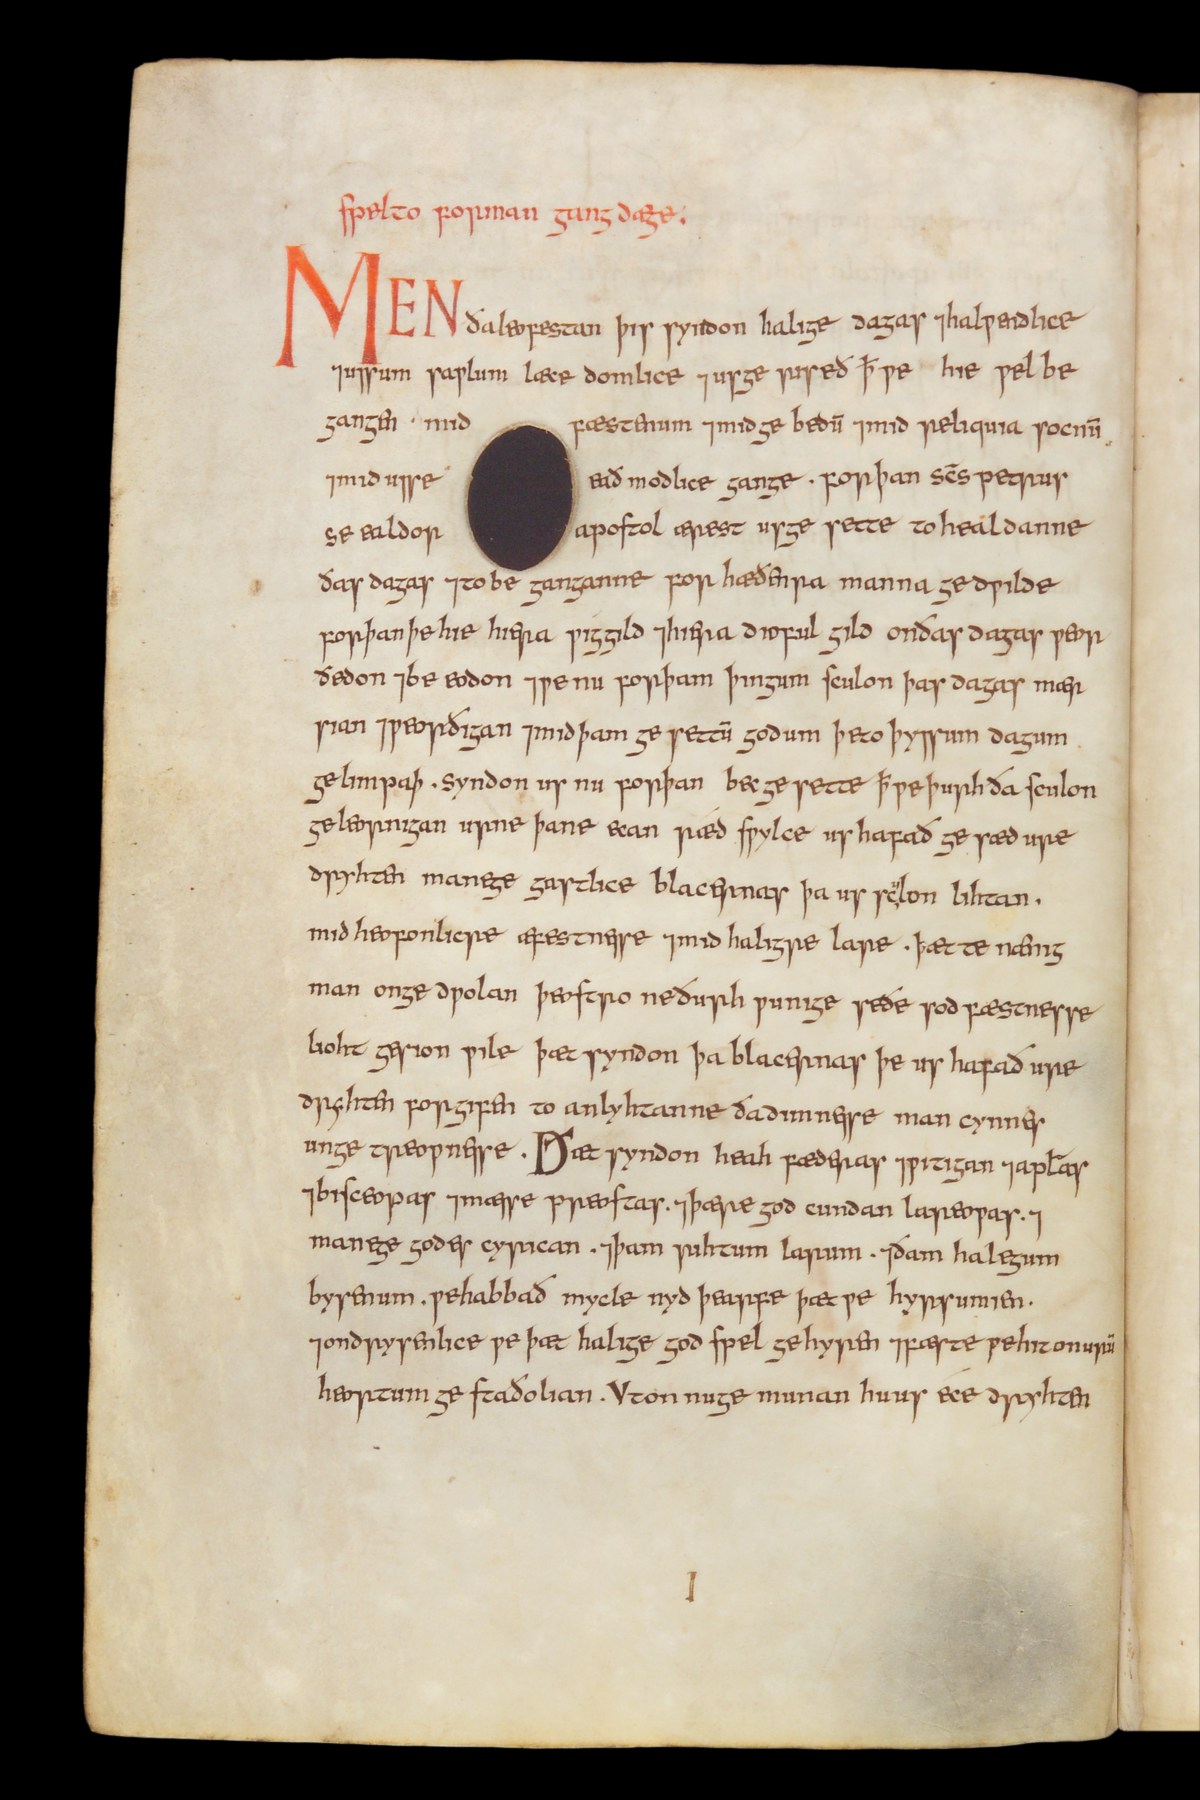 spel to forman gang dæge.
MEN ða leofestan þis syndon halige dagas ⁊ halwendlice
⁊ ussum sawlum læce domlice ⁊ us ge rised þ̄ we hie wel be
gangen · mid fæstenum ⁊ mid ge bedū ⁊ mid reliquia socnū
⁊ mid usse eað modlice gange · for þan sc̄s petrus
se ealdor apostol ærest us ge sette to healdanne
ðas dagas ⁊ to be ganganne for hæðenra manna ge dwilde
for þan þe hie hiera wiggild ⁊ hiera dioful gild on ðas dagas weor
ðedon ⁊ be eodon ⁊ we nu for þam þingum sculon þas dagas mær
sian ⁊ weorðigan ⁊ mid þam ge settū godum þe to þyssum dagum
ge limpaþ · syndon us nu for þan bec ge sette þ̄ we þurh ða sculon
ge leornigan urne þane ecan ræd swylce us hafað ge ræd ure
dryhten manege gastlice blacernas þa us sculon lihtan ·
mid heofonlicre æfestnesse ⁊ mid haligre lare · þæt te nænig
man on ge dwolan þeostro ne ðurh wunige se ðe sod fæstnesse
lioht gesion wile þæt syndon þa blacernas þe us hafað ure
dryhten forgifen to anlyhtanne ða dimnesse man cynnes
unge treownesse · Ðæt syndon heah fæderas ⁊ witigan ⁊ apłas
⁊ bisceopas ⁊ mæsse preostas · ⁊ þære god cundan lareowas · ⁊
manege godes cyrican · ⁊ þam rihtum larum · ⁊ ðam halegum
bysenum · we habbað mycle nyd þearfe þæt we hyrsumien ·
⁊ ondrysenlice we þæt halige god spel ge hyren ⁊ fæste we hit on urū
heortum ge staðolian · Vton nu ge munan hu us ece dryhten